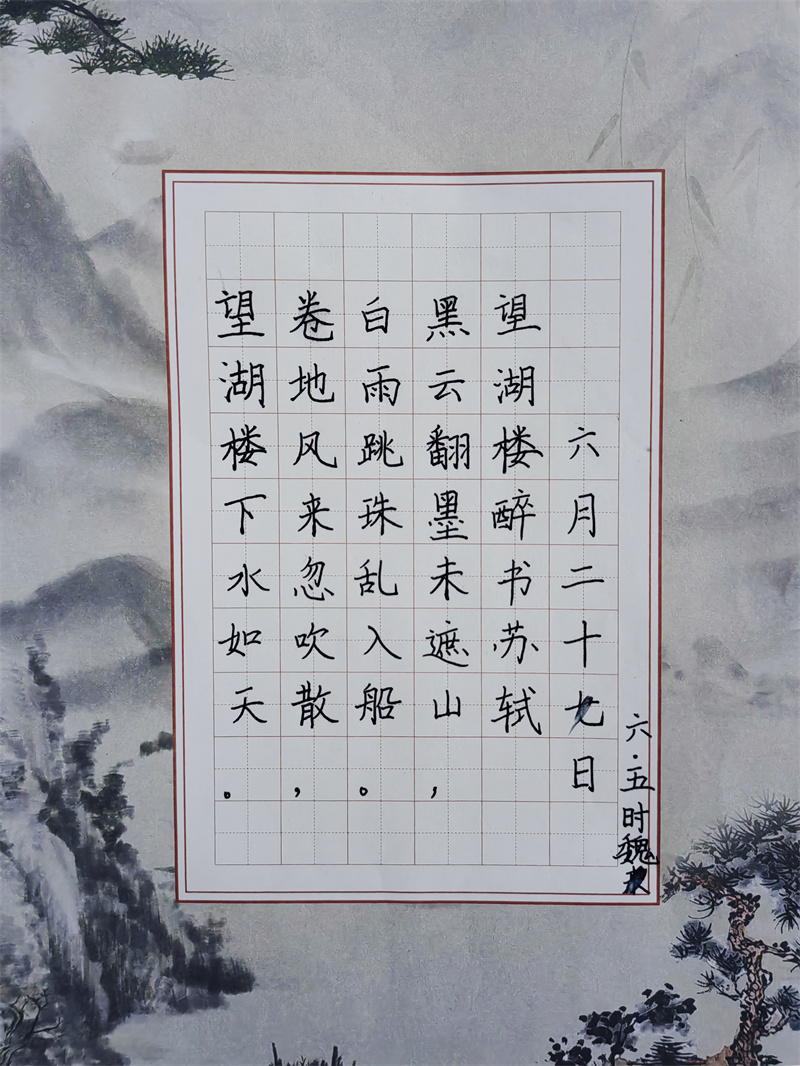 六月二十七日
望湖楼醉书苏轼
黑云翻墨未遮山，
白雨跳珠乱入船。
卷地风来忽吹散，
望湖楼下水如天。
六.五时魏